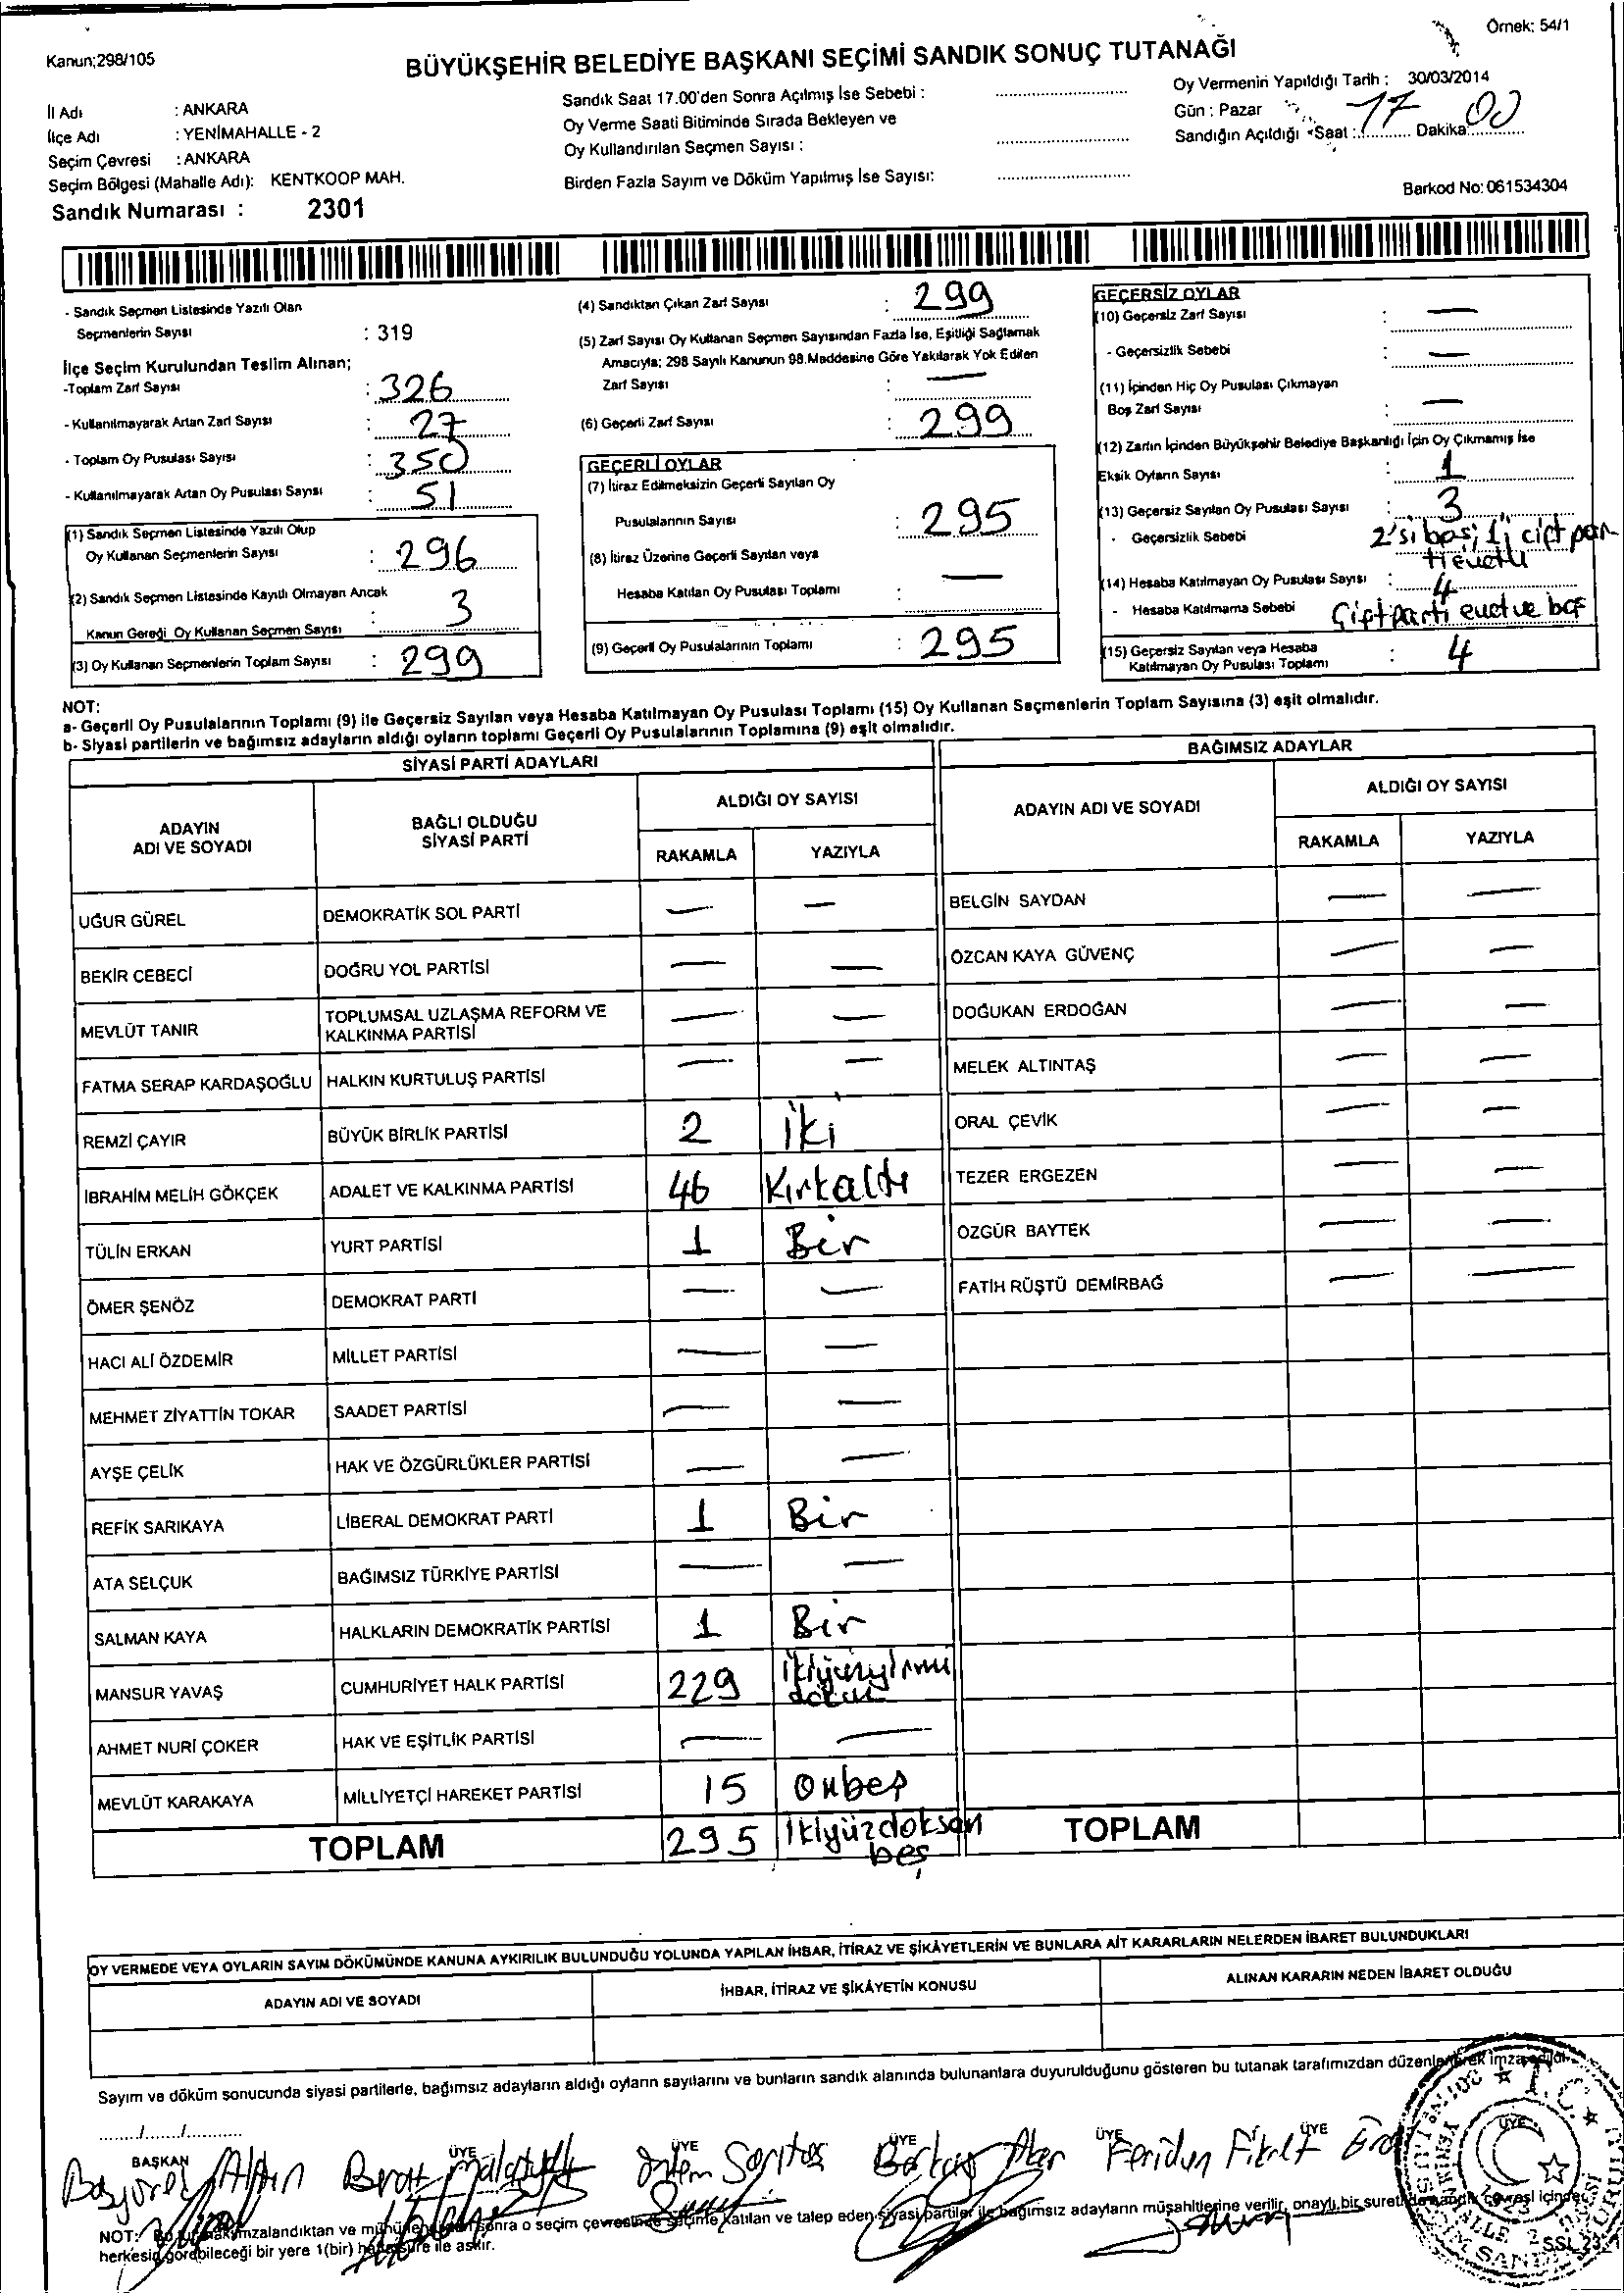 Örnek: 54/1
Kanun;298/105
BÜYÜKŞEHİR BELEDİYE BAŞKANI SEÇİMİ SANDIK SONUÇ TUTANAĞI
İl Adı : ANKARA
İlçe Adı : YENİMAHALLE - 2
Seçim Çevresi : ANKARA
Seçim Bölgesi (Mahalle Adı): KENTKOOP MAH.
Sandık Numarası : 2301
Sandık Saat 17.00'den Sonra Açılmış İse Sebebi :
Oy Verme Saati Bitiminde Sırada Bekleyen ve
Oy Kullandırılan Seçmen Sayısı :
Birden Fazla Sayım ve Döküm Yapılmış İse Sayısı:
Oy Vermenin Yapıldığı Tarih : 30/03/2014
Gün : Pazar
Sandığın Açıldığı Saat : 17 Dakika: 00
Barkod No: 061534304
- Sandık Seçmen Listesinde Yazılı Olan
Seçmenlerin Sayısı : 319
İlçe Seçim Kurulundan Teslim Alınan;
-Toplam Zarf Sayısı : 326
- Kullanılmayarak Artan Zarf Sayısı : 27
- Toplam Oy Pusulası Sayısı : 350
- Kullanılmayarak Artan Oy Pusulası Sayısı : 51
(1) Sandık Seçmen Listesinde Yazılı Olup
Oy Kullanan Seçmenlerin Sayısı : 296
(2) Sandık Seçmen Listesinde Kayıtlı Olmayan Ancak
Kanun Gereği Oy Kullanan Seçmen Sayısı : 3
(3) Oy Kullanan Seçmenlerin Toplam Sayısı : 299
(4) Sandıktan Çıkan Zarf Sayısı : 299
(5) Zarf Sayısı Oy Kullanan Seçmen Sayısından Fazla İse, Eşitliği Sağlamak
Amacıyla; 298 Sayılı Kanunun 98.Maddesine Göre Yakılarak Yok Edilen
Zarf Sayısı : —
(6) Geçerli Zarf Sayısı : 299
GEÇERLİ OYLAR
(7) İtiraz Edilmeksizin Geçerli Sayılan Oy
Pusulalarının Sayısı : 295
(8) İtiraz Üzerine Geçerli Sayılan veya
Hesaba Katılan Oy Pusulası Toplamı : —
(9) Geçerli Oy Pusulalarının Toplamı : 295
GEÇERSİZ OYLAR
(10) Geçersiz Zarf Sayısı : —
- Geçersizlik Sebebi : —
(11) İçinden Hiç Oy Pusulası Çıkmayan
Boş Zarf Sayısı : —
(12) Zarfın İçinden Büyükşehir Belediye Başkanlığı İçin Oy Çıkmamış İse
Eksik Oyların Sayısı : 1
(13) Geçersiz Sayılan Oy Pusulası Sayısı : 3
- Geçersizlik Sebebi 2'si boş; 1'i çift par-
ti evetli
(14) Hesaba Katılmayan Oy Pusulası Sayısı : 4
- Hesaba Katılmama Sebebi Çift parti evet ve boş
(15) Geçersiz Sayılan veya Hesaba
Katılmayan Oy Pusulası Toplamı : 4
NOT:
a- Geçerli Oy Pusulalarının Toplamı (9) ile Geçersiz Sayılan veya Hesaba Katılmayan Oy Pusulası Toplamı (15) Oy Kullanan Seçmenlerin Toplam Sayısına (3) eşit olmalıdır.
b- Siyasi partilerin ve bağımsız adayların aldığı oyların toplamı Geçerli Oy Pusulalarının Toplamına (9) eşit olmalıdır.
SİYASİ PARTİ ADAYLARI
ADAYIN
ADI VE SOYADI
BAĞLI OLDUĞU
SİYASİ PARTİ
ALDIĞI OY SAYISI
RAKAMLA YAZIYLA
UĞUR GÜREL DEMOKRATİK SOL PARTİ — —
BEKİR CEBECİ DOĞRU YOL PARTİSİ — —
MEVLÜT TANIR TOPLUMSAL UZLAŞMA REFORM VE
KALKINMA PARTİSİ — —
FATMA SERAP KARDAŞOĞLU HALKIN KURTULUŞ PARTİSİ — —
REMZİ ÇAYIR BÜYÜK BİRLİK PARTİSİ 2 İki
İBRAHİM MELİH GÖKÇEK ADALET VE KALKINMA PARTİSİ 46 Kırkaltı
TÜLİN ERKAN YURT PARTİSİ 1 Bir
ÖMER ŞENÖZ DEMOKRAT PARTİ — —
HACI ALİ ÖZDEMİR MİLLET PARTİSİ — —
MEHMET ZİYATTİN TOKAR SAADET PARTİSİ — —
AYŞE ÇELİK HAK VE ÖZGÜRLÜKLER PARTİSİ — —
REFİK SARIKAYA LİBERAL DEMOKRAT PARTİ 1 Bir
ATA SELÇUK BAĞIMSIZ TÜRKİYE PARTİSİ — —
SALMAN KAYA HALKLARIN DEMOKRATİK PARTİSİ 1 Bir
MANSUR YAVAŞ CUMHURİYET HALK PARTİSİ 229 ikiyüzyirmi
dokuz
AHMET NURİ ÇOKER HAK VE EŞİTLİK PARTİSİ — —
MEVLÜT KARAKAYA MİLLİYETÇİ HAREKET PARTİSİ 15 Onbeş
TOPLAM 295 İkiyüzdoksan
beş
BAĞIMSIZ ADAYLAR
ADAYIN ADI VE SOYADI
ALDIĞI OY SAYISI
RAKAMLA YAZIYLA
BELGİN SAYDAN — —
ÖZCAN KAYA GÜVENÇ — —
DOĞUKAN ERDOĞAN — —
MELEK ALTINTAŞ — —
ORAL ÇEVİK — —
TEZER ERGEZEN — —
ÖZGÜR BAYTEK — —
FATİH RÜŞTÜ DEMİRBAĞ — —
TOPLAM
OY VERMEDE VEYA OYLARIN SAYIM DÖKÜMÜNDE KANUNA AYKIRILIK BULUNDUĞU YOLUNDA YAPILAN İHBAR, İTİRAZ VE ŞİKÂYETLERİN VE BUNLARA AİT KARARLARIN NELERDEN İBARET BULUNDUKLARI
ADAYIN ADI VE SOYADI
İHBAR, İTİRAZ VE ŞİKÂYETİN KONUSU
ALINAN KARARIN NEDEN İBARET OLDUĞU
Sayım ve döküm sonucunda siyasi partilerle, bağımsız adayların aldığı oyların sayılarını ve bunların sandık alanında bulunanlara duyurulduğunu gösteren bu tutanak tarafımızdan düzenlenerek imza edildi.
....../......./............
BAŞKAN ÜYE ÜYE ÜYE ÜYE ÜYE ÜYE
Altan Berat Feridun Fikret
NOT: Bu tutanak imzalandıktan ve mühürlendikten sonra o seçim çevresinde seçime katılan ve talep eden siyasi partiler ile bağımsız adayların müşahitlerine verilir, onaylı bir sureti de sandık çevresi içinde
herkesin görebileceği bir yere 1(bir) hafta süre ile asılır.
T.C.